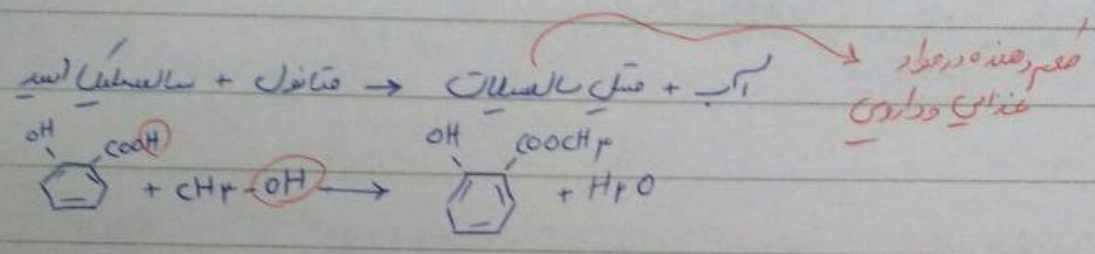 سالیسیلیک اسید + متانول → متیل سالسیلات + آب
طعم دهنده در مواد
غذایی و دارویی
OH COOH + CH۳-OH → OH COOCH۳ + H۲O